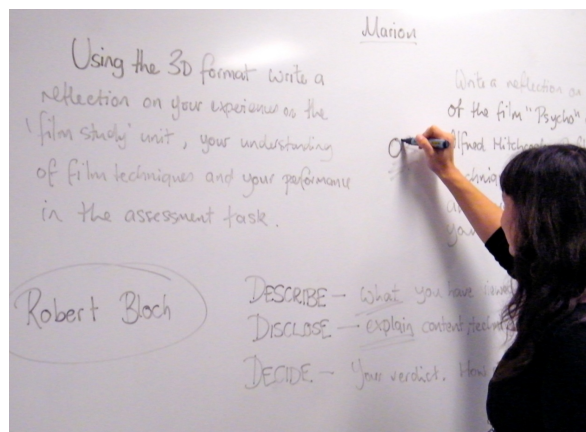 Marion
Using the 3D format write a
reflection on your experiences on the
'film study' unit, your understanding
of film techniques and your performance
in the assessment task.
Write a reflection on
of the film "Psycho"
Alfred Hitchcock
Robert Bloch
DESCRIBE - What you have
DISCLOSE - explain content,
DECIDE - Your verdict. How